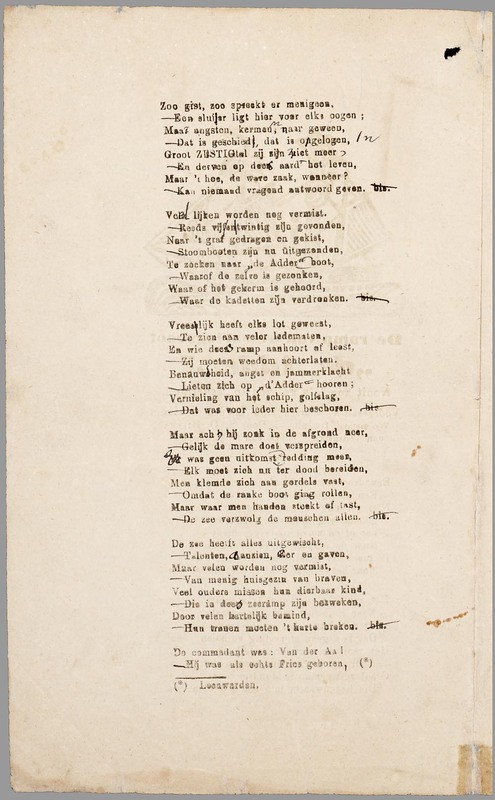 Zoo gist, zoo spreekt er menigeen,
—Een sluijer ligt hier voor elks oogen ;
Maar angsten, kermen, naar geween,
—Dat is geschied, dat is opgelogen,
Groot ZESTIGtal zij zijn niet meer
—En derven op deez aard' het leven,
Maar 't hoe, de ware zaak, wanneer ?
—Kan niemand vragend antwoord geven. bis.
Veel lijken worden nog vermist.
—Reeds vijfentwintig zijn gevonden,
Naar 't graf gedragen en gekist,
—Stoombooten zijn nu uitgezonden,
Te zoeken naar „de Adder" boot,
—Waarof de zelve is gezonken,
Waar of het gekerm is gehoord,
—Waar de kadetten zijn verdronken. bis.
Vreeslijk heeft elks lot geweest,
—Te zien aan veler ledematen,
En wie deez ramp aanhoort of leest,
—Zij moeten weedom achterlaten.
Benauwdheid, angst en jammerklacht
—Lieten zich op „d'Adder" hooren ;
Vernieling van het schip, golfslag,
—Dat was voor ieder hier beschoren. bis.
Maar ach ! hij zonk in de afgrond neer,
—Gelijk de mare doet verspreiden,
was geen uitkomst redding meer,
—Elk moet zich nu ter dood bereiden,
Men klemde zich aan gordels vast,
—Omdat de ranke boot ging rollen,
Maar waar men handen steekt of tast,
—De zee verzwolg de menschen allen. bis.
De zee heeft alles uitgewischt,
—Talenten, aanzien, eer en gaven,
Maar velen worden nog vermist,
—Van menig huisgezin van braven,
Veel ouders missen hun dierbaar kind,
—Die in deez zeeramp zijn bezweken,
Door velen hartelijk bemind,
—Hun treuen moeten 't harte breken. bis.
De commadant was : Van der Aa !
—Hij was als echte Fries geboren, (*)
(*) Leeuwarden.